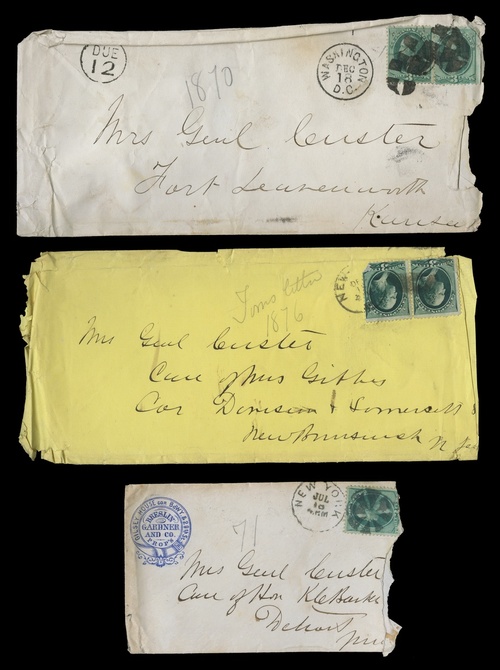 DUE
12
1870
WASHINGTON
DEC
18
D.C.
Mrs Genl Custer
Fort Leavenworth
Kansas
Toms letter
1876
NEW
Mrs Genl Custer
Care of Mrs Gibbes
Cor Dennison & Somersett
New Brunswick N
GILSEY HOUSE COR BDWY & 29TH ST
BRESLIN
GARDNER
AND CO.
PROP'S
71
NEW YORK
JUL
18
Mrs Genl Custer
Care of Hon K C Barker
Detroit
Mich